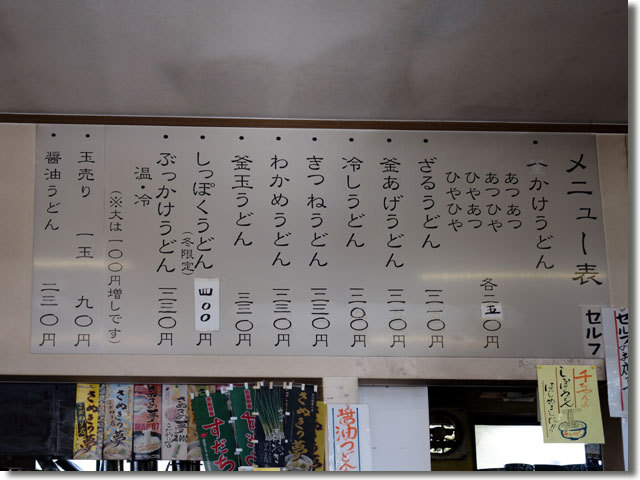 メニュー表
・かけうどん
あつあつ
あつひや
ひやあつ
ひやひや
各二五〇円
・ざるうどん 三一〇円
・釜あげうどん 三一〇円
・冷しうどん 三〇〇円
・きつねうどん 三三〇円
・わかめうどん 三三〇円
・釜玉うどん 三三〇円
・しっぽくうどん(冬限定) 四〇〇円
・ぶっかけうどん 三三〇円
温・冷
(※大は一〇〇円増しです)
・玉売り 一玉 九〇円
・醤油うどん 二三〇円
セルフ
セルフのお店
はじめました!!
醤油うどん
さぬきの夢
さぬきの夢
すだち
さぬきの夢